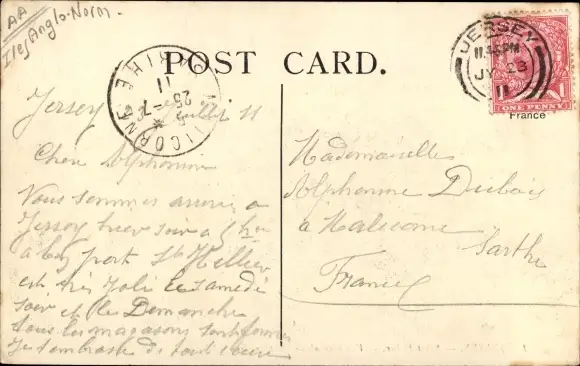 AA
Iles Anglo-Norm.
POST CARD.
JERSEY
11.45PM
JY 23
11
ONE PENNY
France
MALICORNE
SARTHE
25 -7
11
Jersey Juillet 11
Chère Alphonsine
Vous sommes arrivé a
Jersey hier soir a 5 h
a by port St Hellier
est très Joli le samedi
soir et le Dimanche
tous les magasons sont fermé
Je t'embrasse de tout cœur
Mademoiselle
Alphonsine Dubois
a Malicorne
Sarthe
France